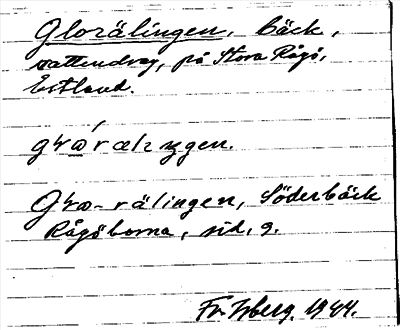 Glorälingen, bäck,
vattendrag, på Stora Rågö,
Estland.
Gro-rälingen, Söderbäck
Rågöborna, sid, 9.
Fr. Isberg, 1944.